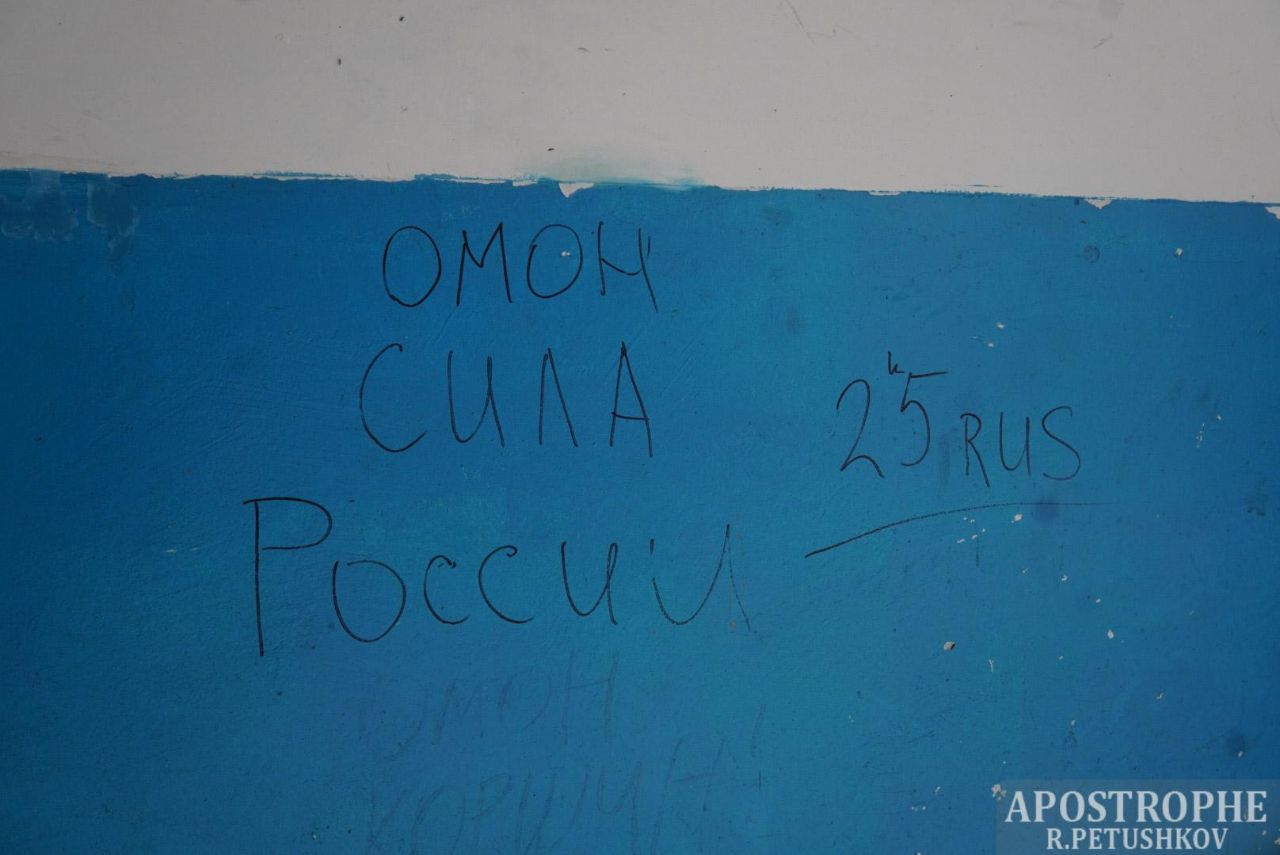 ОМОН
СИЛА
России
25 RUS
ОМОН
APOSTROPHE
R.PETUSHKOV